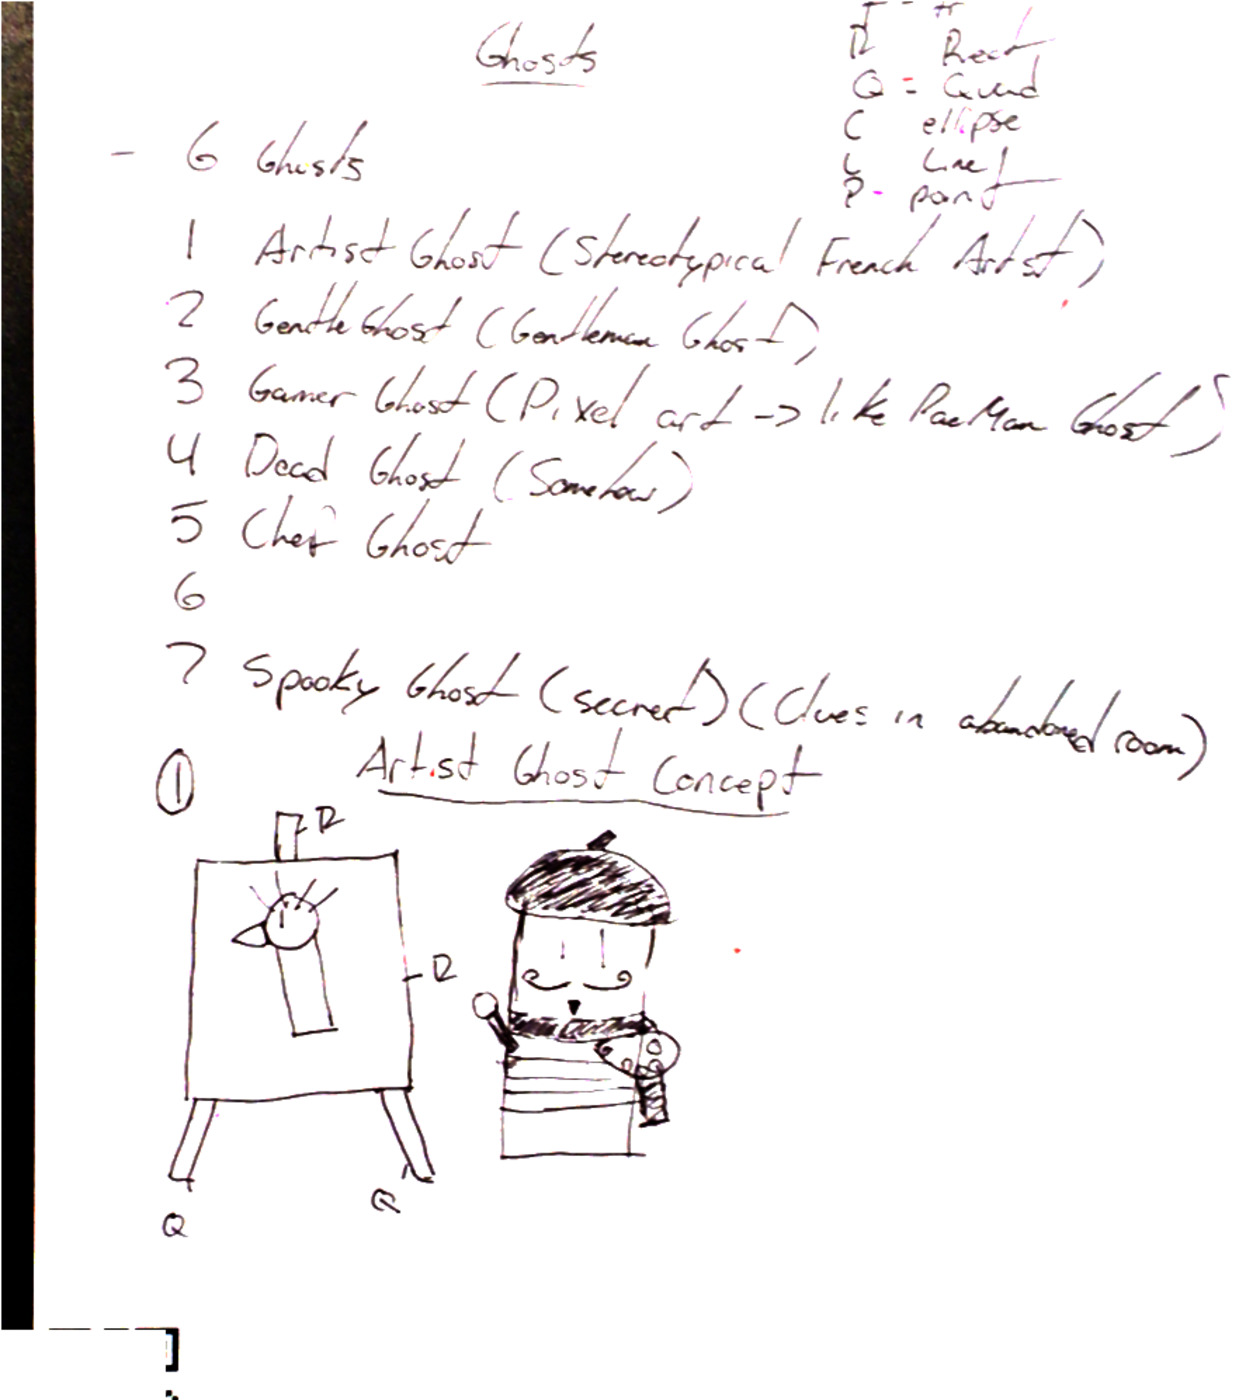 Ghosts
R Rect
Q = Quad
C ellipse
L Line
P - point
- 6 Ghosts
1 Artist Ghost (Stereotypical French Artist)
2 GentleGhost (Gentleman Ghost)
3 Gamer Ghost (Pixel art -> like PacMan Ghost)
4 Dead Ghost (Somehow)
5 Chef Ghost
6
7 Spooky Ghost (secret) (Clues in abandoned room)
1 Artist Ghost Concept
R
R
Q
Q